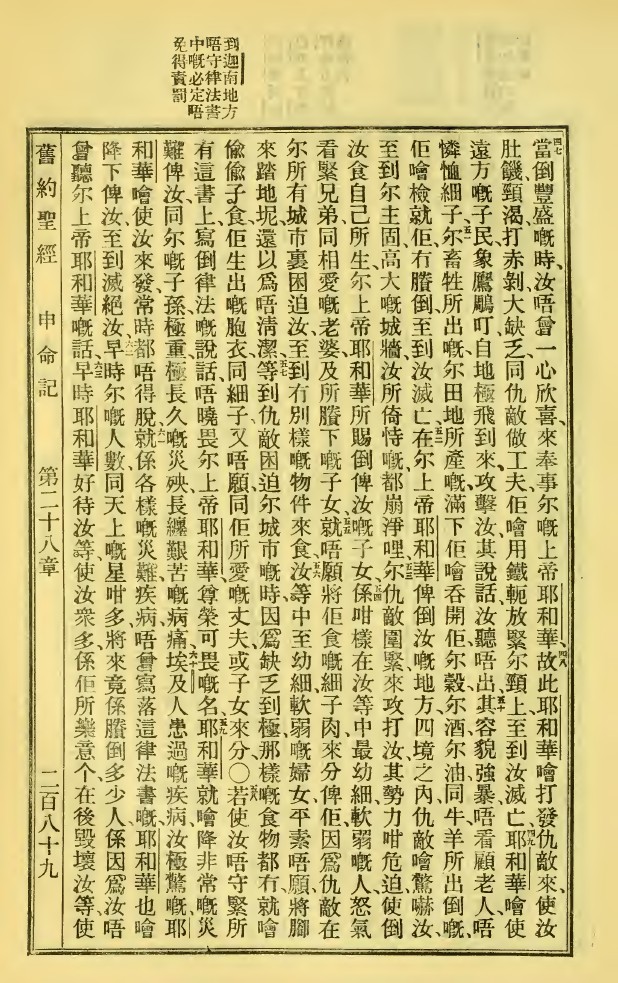 到迦南地方
唔守律法書
中嘅必定唔
免得責罰
四七當倒豐盛嘅時、汝唔曾一心欣喜、來奉事尔嘅上帝耶和華、四八故此耶和華噲打發仇敵來、使汝
肚饑頸渴、打赤剝大缺乏、同仇敵做工夫、佢噲用鐵軛放緊尔頸上、至到汝滅亡、四九耶和華噲使
遠方嘅子民、象鷹鵰叮自地極飛到來、攻擊汝、其說話汝聽唔出、五十其容貌強暴、唔看顧老人、唔
憐恤細子、五一尔畜牲所出嘅、尔田地所產嘅、滿下佢噲吞開佢、尔穀尔酒尔油、同牛羊所出倒嘅、
佢噲檢就、佢冇賸倒、至到汝滅亡、五二在尔上帝耶和華俾倒汝嘅地方、四境之內、仇敵噲驚嚇汝、
至到尔主固高大嘅城牆、汝所倚恃嘅、都崩淨哩、五三尔仇敵圍緊來攻打汝、其勢力咁危迫、使倒
汝食自己所生、尔上帝耶和華所賜倒俾汝嘅子女、五四係咁樣在汝等中最幼細軟弱嘅人、怒氣
看緊兄弟、同相愛嘅老婆、及所賸下嘅子女、五五就唔願將佢食嘅細子肉、來分俾佢、因爲仇敵在
尔所有城市裏困迫汝、至到冇別樣嘅物件來食、五六汝等中至幼細軟弱嘅婦女、平素唔願將腳
來踏地坭、還以爲唔淸潔、五七等到仇敵困迫尔城市嘅時、因爲缺乏到極、那樣嘅食物都冇、就噲
偷偷子食佢生出嘅胞衣同細子、又唔願同佢所愛嘅丈夫或子女來分、〇五八若使汝唔守緊所
有這書上寫倒律法嘅說話、唔曉畏尔上帝耶和華尊榮可畏嘅名、五九耶和華就噲降非常嘅災
難俾汝、同尔嘅子孫、極重極長久嘅災殃、長纏艱苦嘅病痛、六十埃及人患過嘅疾病、汝極驚嘅、耶
和華噲使汝來發、常時都唔得脫、六一就係各樣嘅災難疾病、唔曾寫落這律法書嘅、耶和華也噲
降下俾汝、至到滅絕汝、六二早時尔嘅人數、同天上嘅星咁多、將來竟係賸倒多少人、係因爲汝唔
曾聽尔上帝耶和華嘅話、六三早時耶和華好待汝等、使汝衆多、係佢所樂意、个在後毀壞汝等、使
舊約聖經 申命記 第二十八章 二百八十九